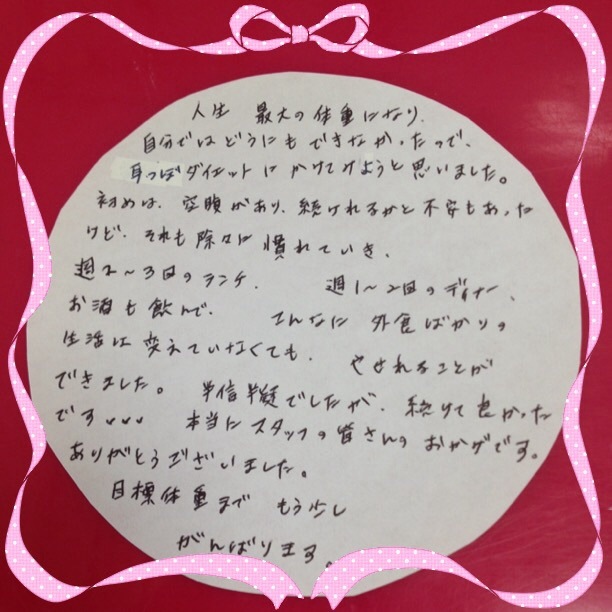 人生 最大の体重になり、
自分ではどうにもできなかったので、
耳つぼダイエットにかけてけようと思いました。
初めは、空腹があり、続けれるかと不安もあった
けど、それも除々に慣れていき、
週2〜3回のランチ、 週1〜2回のディナー、
お酒も飲んで、 こんなに 外食ばかりの
生活は変えていなくても、 やせれることが
できました。 半信半疑でしたが、続けて良かった
です、、、 本当にスタッフの皆さんのおかげです。
ありがとうございました。
目標体重まで もう少し
がんばります。